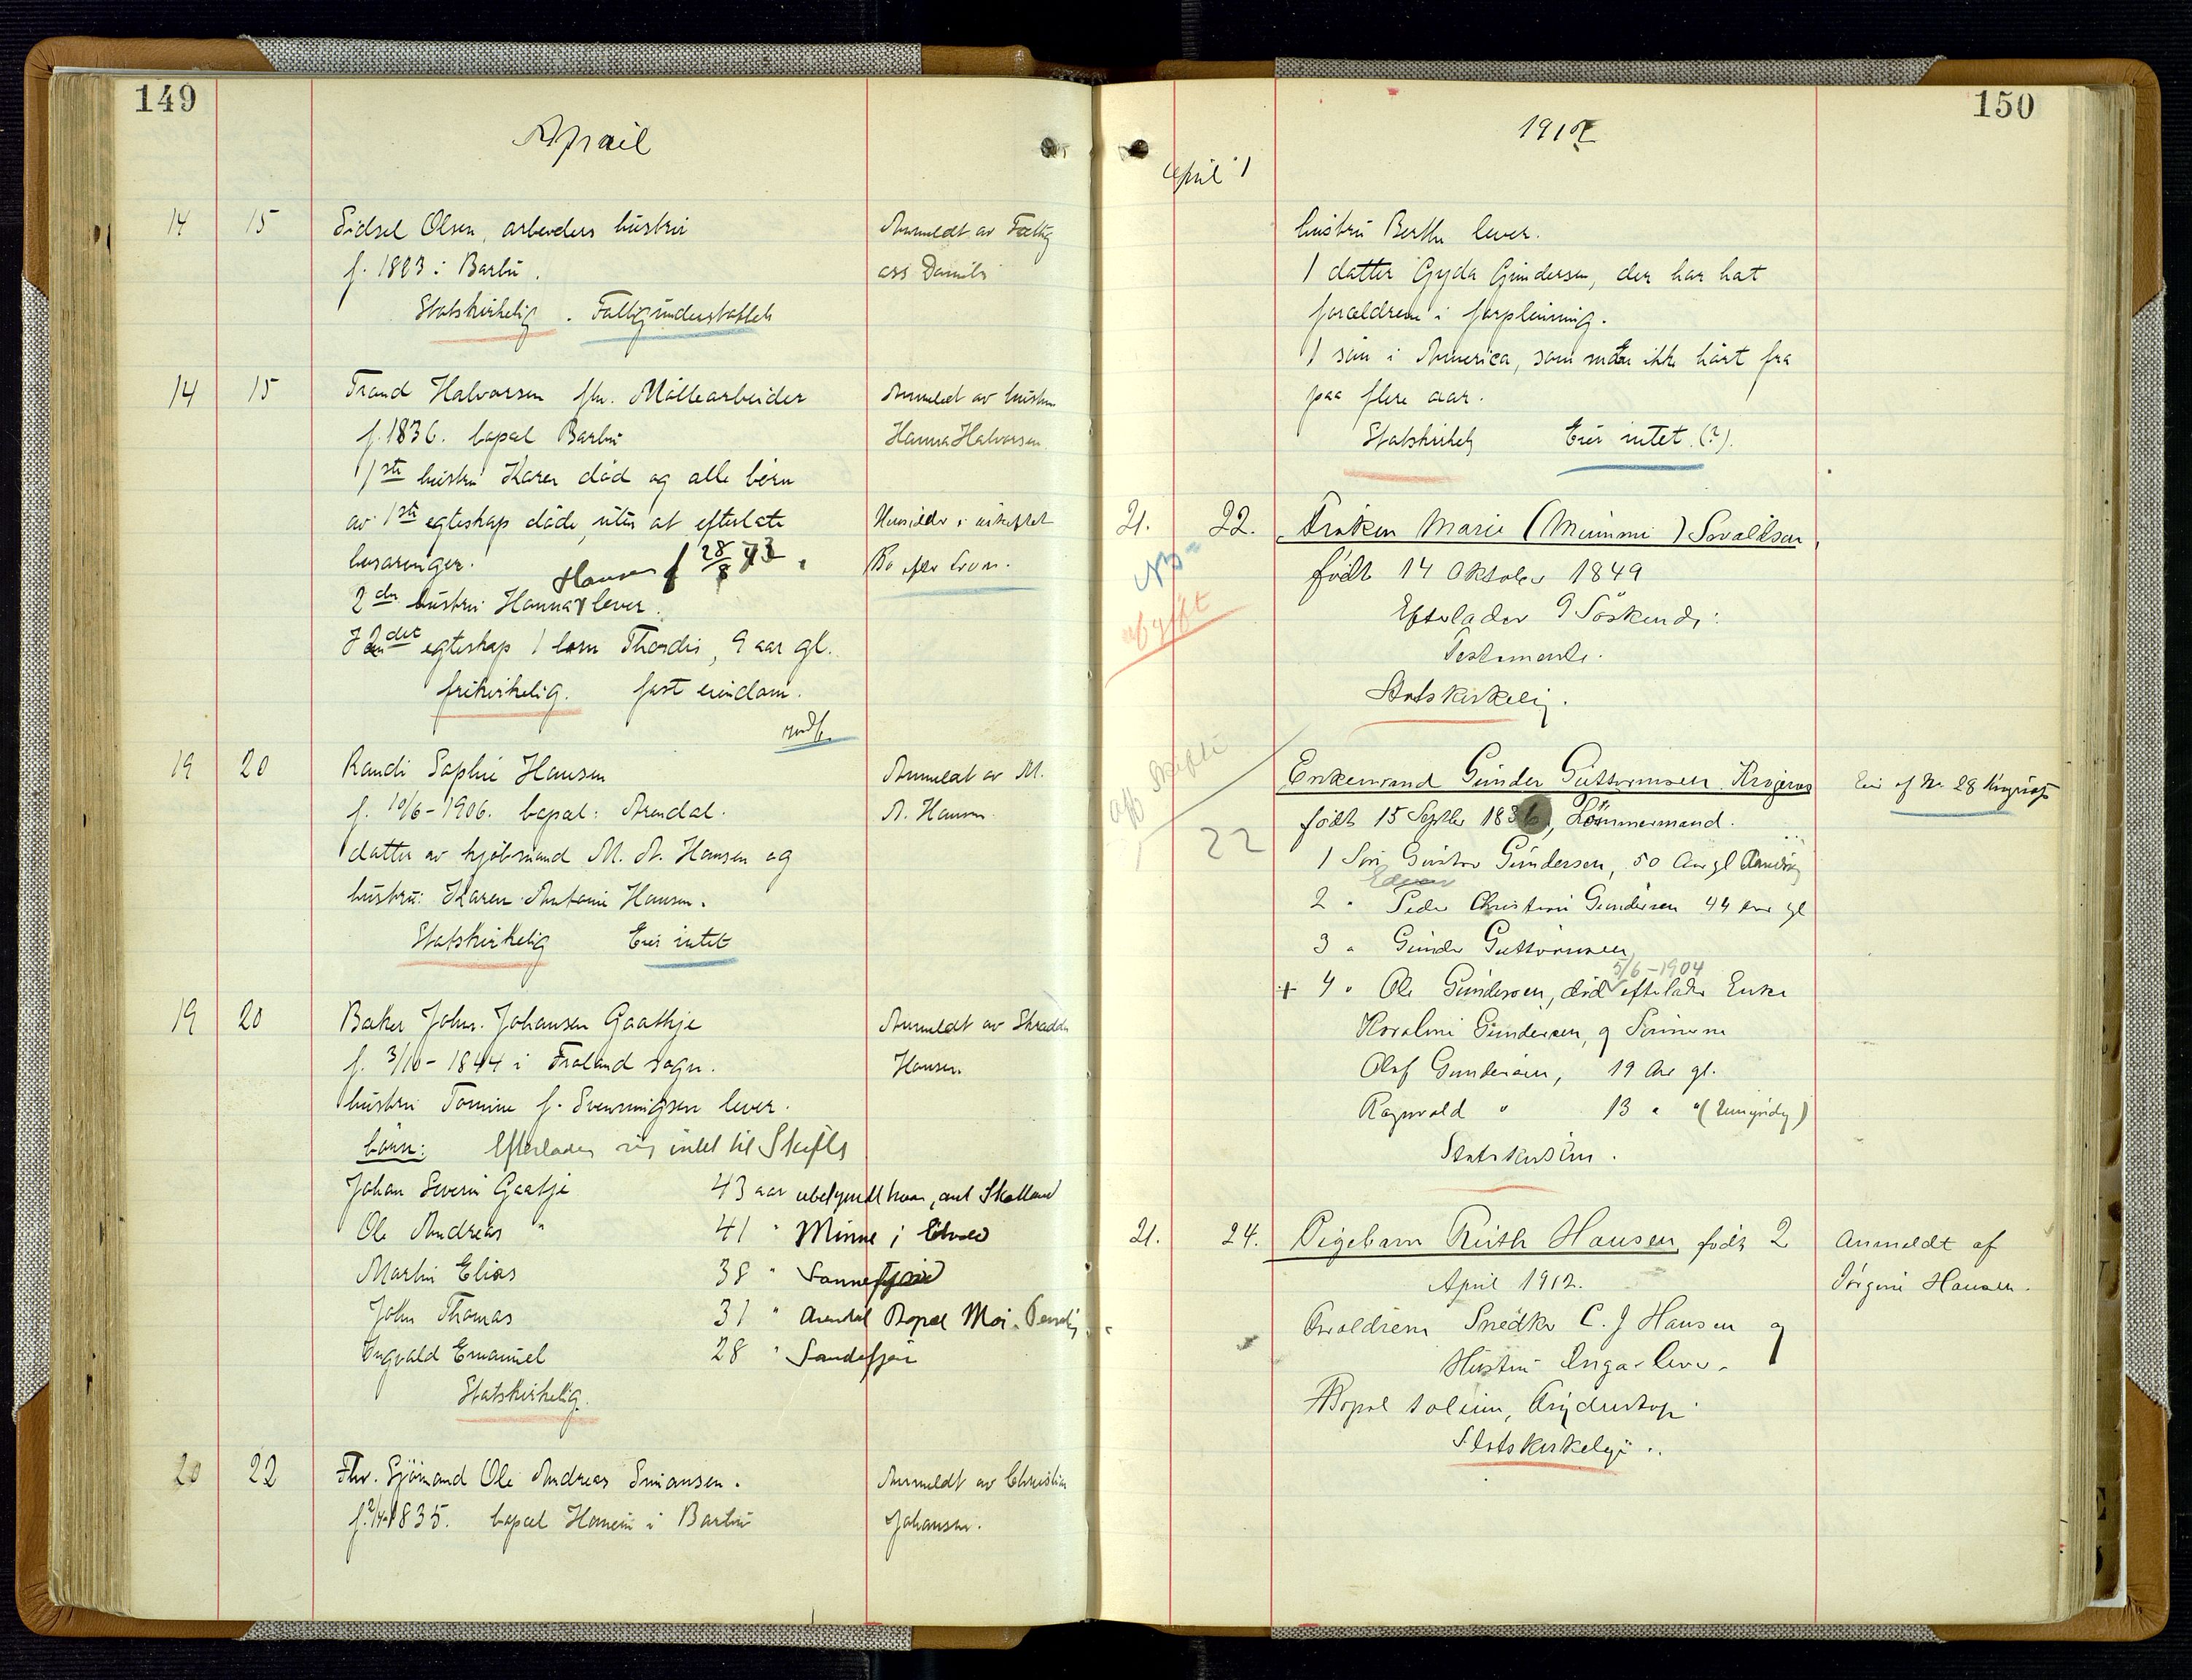 149
April
14 15 Sidsel Olsen, arbeiders hustru
f. 1823 i Barbu.
Statskirkelig. Fattigunderstøttet
Anmeldt av Fattig
ass Daniels
14 15 Trond Halvorsen fhv. Møllearbeider
f. 1836. bopæl Barbu
1ste hustru Karen død og alle børn
av 1ste egteskap døde, uten at efterlate
livsarvinger.
Hansen f 28/8 73.
2den hustru Hanna lever.
I 2det egteskap 1 barn Thordis, 9 aar gl.
frikirkelig. fast eiendom.
Anmeldt av hustru
Hanna Halvorsen.
Hensidder i uskiftet
Bo efter Loven.
19 20 Randi Sophie Hansen
f. 10/6-1906. bopæl: Arendal.
datter av kjøbmand M. A. Hansen og
hustru: Karen Antonie Hansen.
Statskirkelig Eier intet
Anmeldt av M.
A. Hansen.
19 20 Baker Johs. Johansen Gaathje
f. 3/10-1844 i Froland sogn.
hustru Tomine f. Svenningsen lever.
børn: Efterlader sig intet til Skifte
Johan Severin Gaatje 43 aar ubekjendt hvor, ant Skotland
Ole Andreas " 41 "
Martin Elias 38 "
John Thomas 31 " Arendal Bopæl
Ingvald Emanuel 28 " Sandefjor
Statskirkelig.
Anmeldt av Skrædder
Hansen.
20 22 Fhv. Sjømand Ole Andreas
1835. bopæl i Barbu
Anmeldt av Christian
Johansen.
150
1912
April
hustru Berthe lever.
1 datter Gyda Gundersen, der har hat
forældrene i forpleining.
1 søn i America, som man ikke hørt fra
paa flere aar.
Statskirkelig Eier intet (?).
21. 22. Frøken Marie (Mimmi) Svaldsen
født 14 Oktober 1849
Efterlader 9 Søskende:
Testamente.
Statskirkelig.
NB
afgift
aff Skifte
22
Enkemand Gunder Guttormsen
født 15 Septbr 1836, Tømmermand.
1 Søn Gustav Gundersen, 50 Aar gl
2 " Peder Christian Gundersen 44 Aar gl
3 " Gunder Guttormsen
+ 4 " Ole Gundersen, død 5/6-1904 efterlader Enke
Gundersen, og Sønnerne
Olaf Gundersen, 19 Aar gl.
Ragnvald " 13 " "
Eier af No. 28
21. 24. Pigebarn Ruth Hansen, født 2
April 1912.
Forældrene Snedker C. J Hansen og
Hustru Inga lever.
Bopæl
Statskirkelige.
Anmeldt af
Jørgine Hansen.